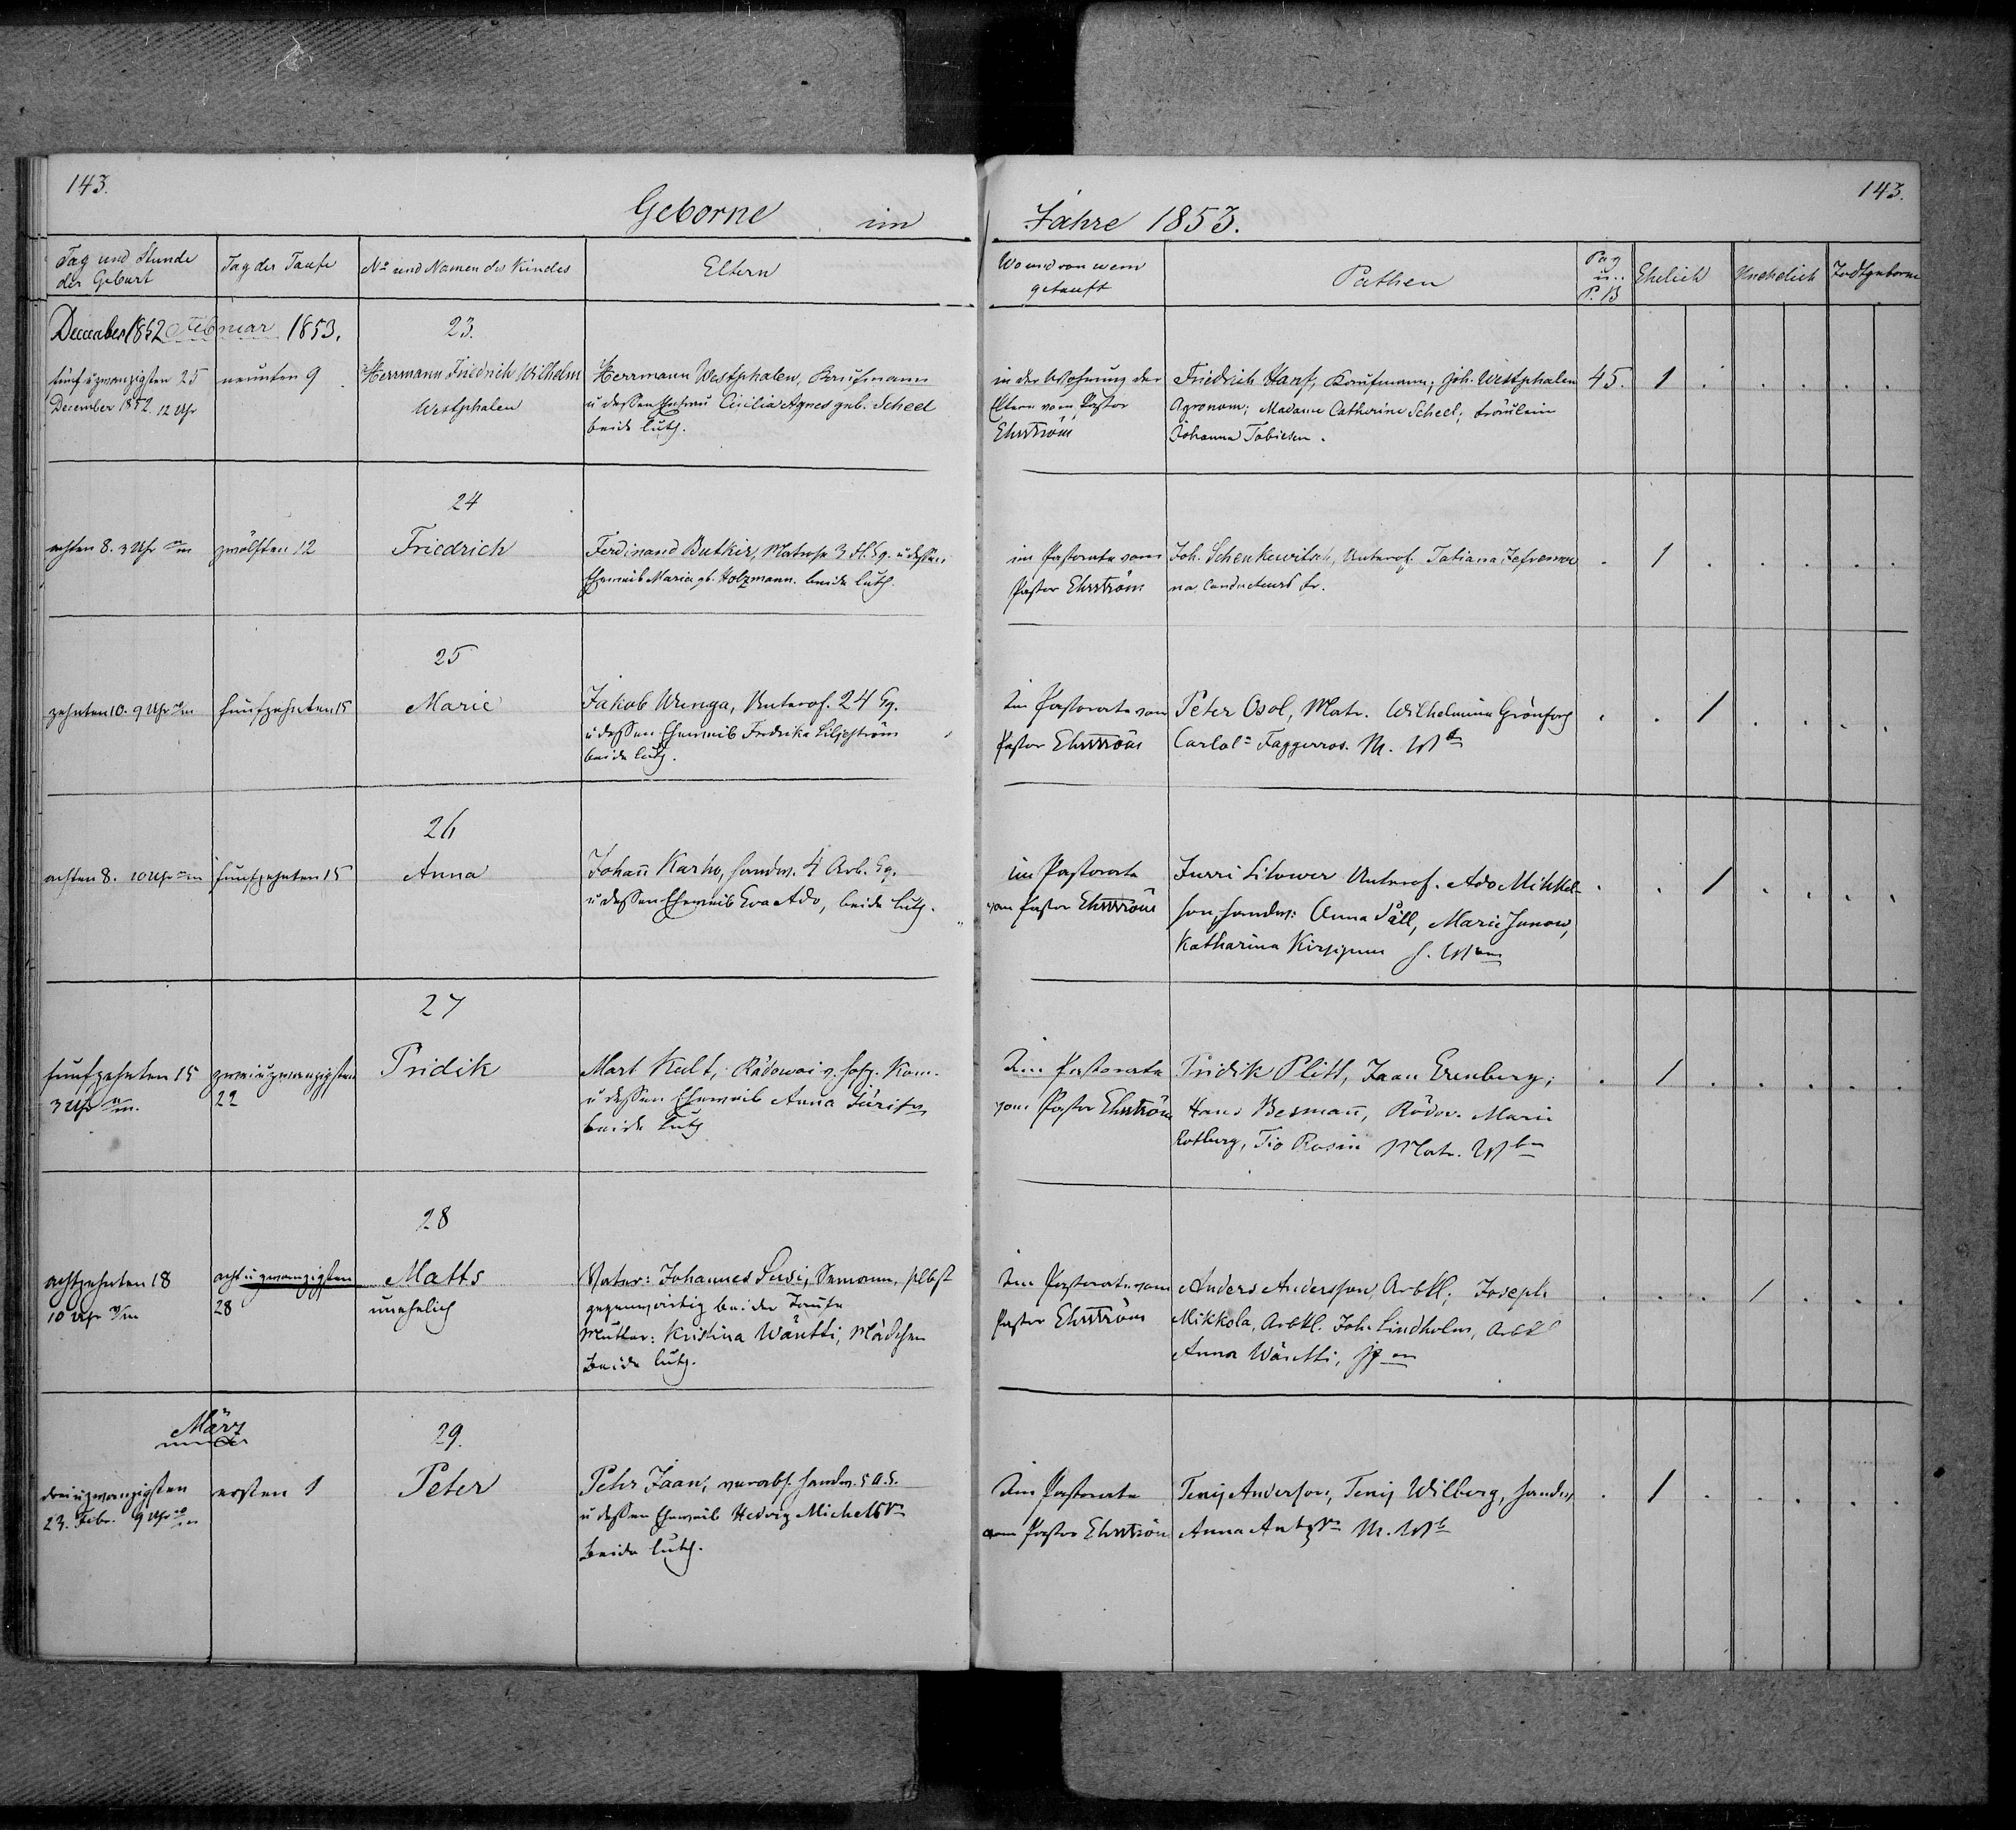 143.
143.
Geborne im
Jahre 1853.
Tag und Stunde
der Geburt
Tag der Taufe
No und Namen des Kindes
Eltern
Wo und von wem
getauft
Pathen
Pag
u.
P. B
Ehelich
Unehelich
Todtgeborne
December 1852 Februar 1853.
23.
fünf u zwanzigsten 25
December 1852. 12 Uhr
neunten 9
Herrmann Friedrich Wilhelm
Westphalen
Herrmann Westphalen, Kaufmann
u dessen Ehefrau Cicilia Agnes geb. Scheel
beide luth.
in der Wohnung der
Eltern vom Pastor
Ehrström
Friedrich Hanf, Kaufmann; Joh. Westphalen
Agronom; Madame Catherine Scheel; Fräulein
Johanna Tobiesen.
45. 1
24
achten 8. 3 Uhr
zwölften 12
Friedrich
Ferdinand Butkis, Matrose 3 Fl. Eq. u dessen
Eheweib Maria gb. Holzmann. beide luth.
im Pastorate vom
Pastor Ehrström
Joh. Schenkewitsch, Unterof. Tatiana Jefremow
na, Conducteurs Fr.
1
25
zehnten 10. 9 Uhr
fünfzehnten 15
Marie
Jakob Wunga, Unterof. 24 Eq.
u dessen Eheweib Fredrika Liljeström
beide luth.
Im Pastorate vom
Pastor Ehrström
Peter Osol, Matr. Wilhelmina Grönforg
Carlol= Faggerros. M. W
1
26
achten 8. 10 Uhr
fünfzehnten 15
Anna
Johan̄ Karho, Handw. 4 Arb. Eq.
u dessen Eheweib Eva Ado, beide luth.
im Pastorate
vom Pastor Ehrström
Jurri Litower Unterof. Ado Mihkel-
son, Handw: Anna Päll, Marie Janow,
Katharina H. W
1
27
fünfzehnten 15
3 Uhr
zwei u zwanzigsten
22
Pridik
Mart Kult, Rädowoi v. Hafg. Kom.
u dessen Eheweib Anna Jürifn
beide luth
Im Pastorate
vom Pastor Ehrström
Pridik Plitt, Jaan Erenberg;
Hans Besman̄, Rädow. Marie
Rotberg, Tio Rosin Matr. W
1
28
achtzehnten 18
10 Uhr
acht u zwanzigsten
28
Matts
unehelich
Vater: Johannes Susi, Semann, selbst
gegenwärtig bei der Taufe
Mutter: Kristina Wäntti, Mädchen
Beide luth.
Im Pastorate vom
Pastor Ehrström
Anders Andersson, Arbtl; Joseph
Mikkola, Arbtl. Joh. Lindholm, Arbtl
Anna Wäntti,
1
März
29.
drei u zwanzigsten
23. Febr. 9 Uhr
ersten 1
Peter
Pehr Jaan, verabs. Handw. 5 A. E.
u dessen Eheweib Hedvig Michels
Beide luth.
Im Pastorate
vom Pastor Ehrström
Tenis Anderson, Tenis Wilberg, Handw
Anna M. W
1